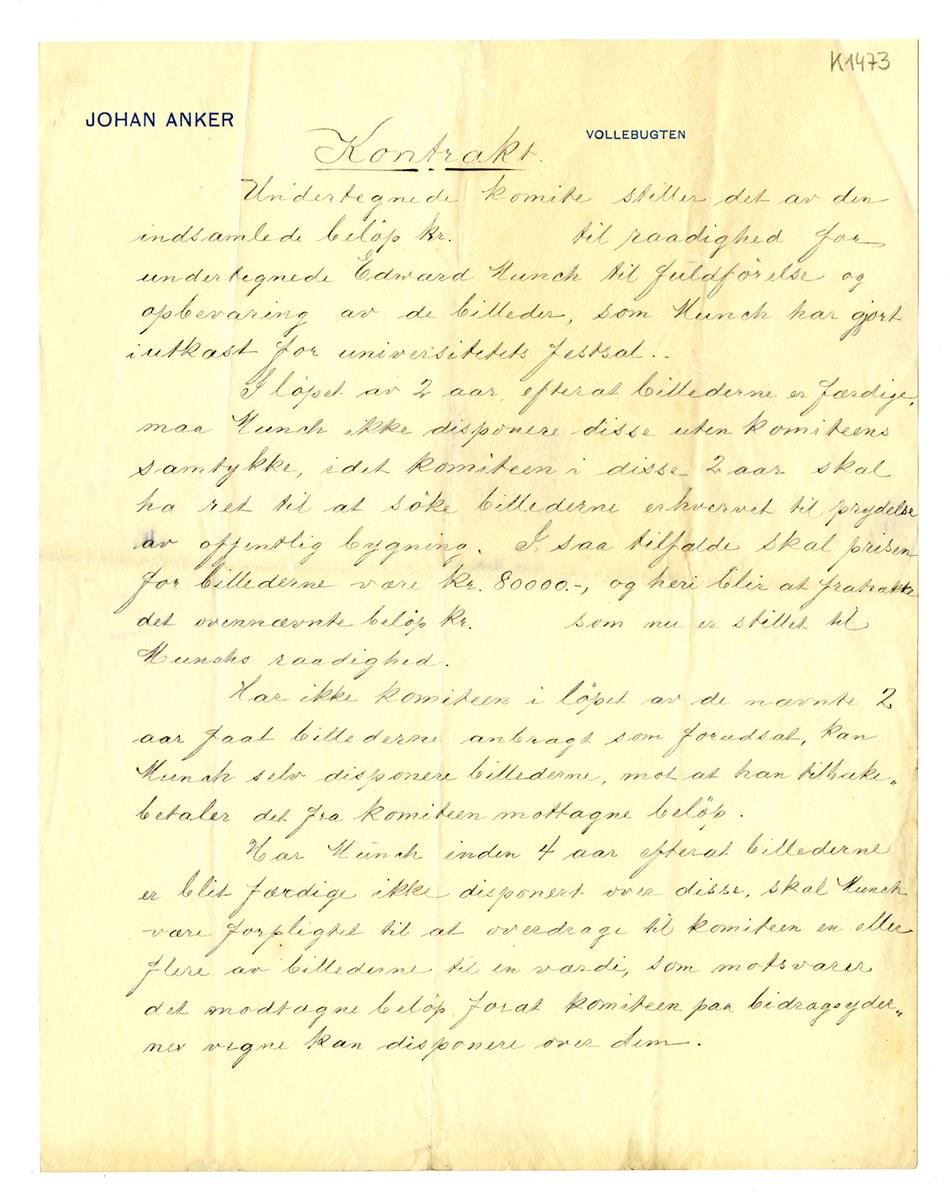 K1473
JOHAN ANKER
VOLLEBUGTEN
Kontrakt.
Undertegnede komite stiller det av den
indsamlede beløp kr. til raadighed for
undertegnede Edward Munch til fuldførelse og
opbevaring av de billeder, som Munch har gjort
i utkast for universitetets festsal..
I løpet av 2 aar, efterat billederne er færdige,
maa Munch ikke disponere disse uten komiteens
samtykke, idet komiteen i disse 2 aar skal
ha ret til at søke billederne erhvervet til prydelse
av offentlig bygning. I saa tilfælde skal prisen
for billederne være kr. 80000.-, og heri blir at fratrække
det ovennævnte beløp kr. som nu er stillet til
Munchs raadighed.
Har ikke komiteen i løpet av de nævnte 2
aar faat billederne anbragt som forudsat, kan
Munch selv disponere billederne, mot at han tilbake„
betaler det fra komiteen mottagne beløp.
Har Munch inden 4 aar efterat billederne
er blit færdige ikke disponert over disse, skal Munch
være forpligtet til at overdrage til komiteen en eller
flere av billederne til en værdi, som motsvarer
det modtagne beløp forat komiteen paa bidragsyder„
nes vegne kan disponere over dem.